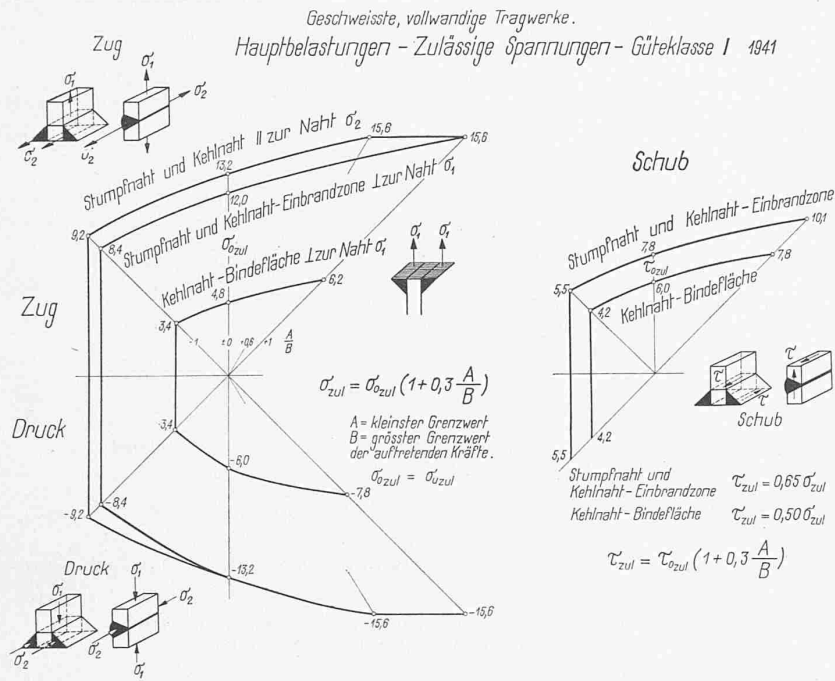 Geschweisste, vollwandige Tragwerke.
Hauptbelastungen - Zulässige Spannungen - Güteklasse I 1941
Zug
σ1
σ1
σ2
σ2
σ2
Stumpfnaht und Kehlnaht II zur Naht σ2
15,6
15,6
13,2
12,0
Stumpfnaht und Kehlnaht-Einbrandzone ⊥ zur Naht σ1
9,2
8,4
σ0zul
Kehlnaht-Bindefläche ⊥ zur Naht σ1
4,8
6,2
3,4
σ1
σ1
Zug
-1
±0
+0,6
+1
A/B
Druck
-3,4
-6,0
-7,8
-8,4
-9,2
-13,2
-15,6
-15,6
σzul = σ0zul (1+0,3 A/B)
A = kleinster Grenzwert
B = grösster Grenzwert
der auftretenden Kräfte.
σ0zul = σuzul
Druck
σ1
σ1
σ2
σ2
σ2
σ1
Schub
Stumpfnaht und Kehlnaht-Einbrandzone
10,1
7,8
τ0zul
7,8
6,0
5,5
4,2
Kehlnaht-Bindefläche
4,2
5,5
τ
τ
τ
Schub
Stumpfnaht und
Kehlnaht-Einbrandzone τzul = 0,65 σzul
Kehlnaht-Bindefläche τzul = 0,50 σzul
τzul = τ0zul (1+0,3 A/B)